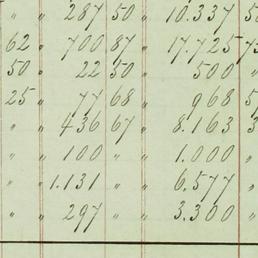 " " 287 50 " 10.337 5
62 " 700 87 " 17.725 7
50 " 22 50 " 500 "
25 " 77 68 " 968 5
" " 436 67 " 8.163 3
" " 100 " " 1.000 "
" " 1.131 " " 6.577 "
" " 297 " " 3.300 "